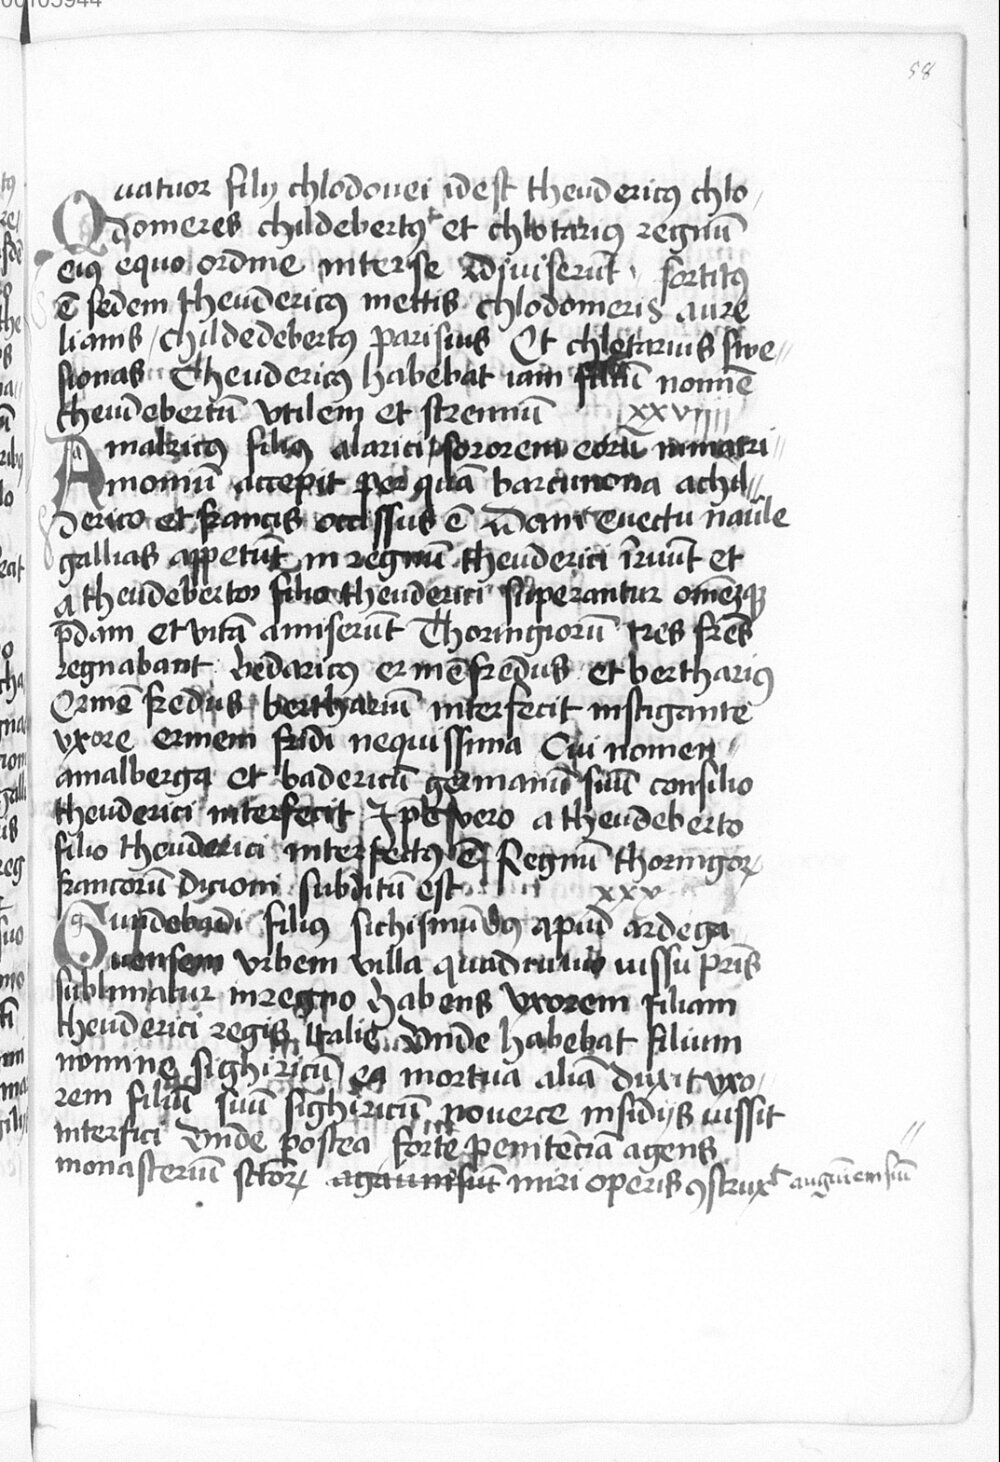 58
Quatuor filij chlodouei idest theudericꝰ chlo/
domeres childebertꝰ et chlotariꝰ regnū
eiꝰ equo ordine inter se diuiserūt sortitꝰ
ē sedem theudericꝰ mettis chlodomeris aure
lianis / childedebertꝰ parisius Et chlotarius swe//
sionas Theudericꝰ habebat iam filiū nomīe
theudebertū vtilem et strenuū xxviiij
Amalricꝰ filiꝰ alarici sororem eorū in matri//
moniū accepit per quā barcinona achil//
derico et francis occissus ē euectu nauale
gallias appetūt in regnū theuderici irruūt et
a theudeberto filio theuderici superantur omēqꝫ
p̄dam et vitā amiserūt Thoringiorū tres fr̄es
regnabant bedaricꝰ ermēfredus et bertharius
Ermēfredus berthariū interfecit instigante
vxore ermem fridi nequissima Cui nomen//
amalberga et badericū germanū suū consilio
theuderici interfecit Ip̄e vero a theudeberto
filio theuderici interfectꝰ ē Regnū thoringoꝝ
francorū dicioni subditū est xxx
Gundebadi filiꝰ sichismūdꝰ apud
urbem villa iussu p̄ris
sublimatur in regno habens vxorem filiam
theuderici regis Italie Vnde habebat filium
nomine sighiricū ea mortua aliā duxit vxo/
rem filiū suū sighiricū nouerce insidijs iussit
interfici Vnde postea forte penitēciā agens
monasteriū sctōꝝ miri operis ꝯstruxᵗ